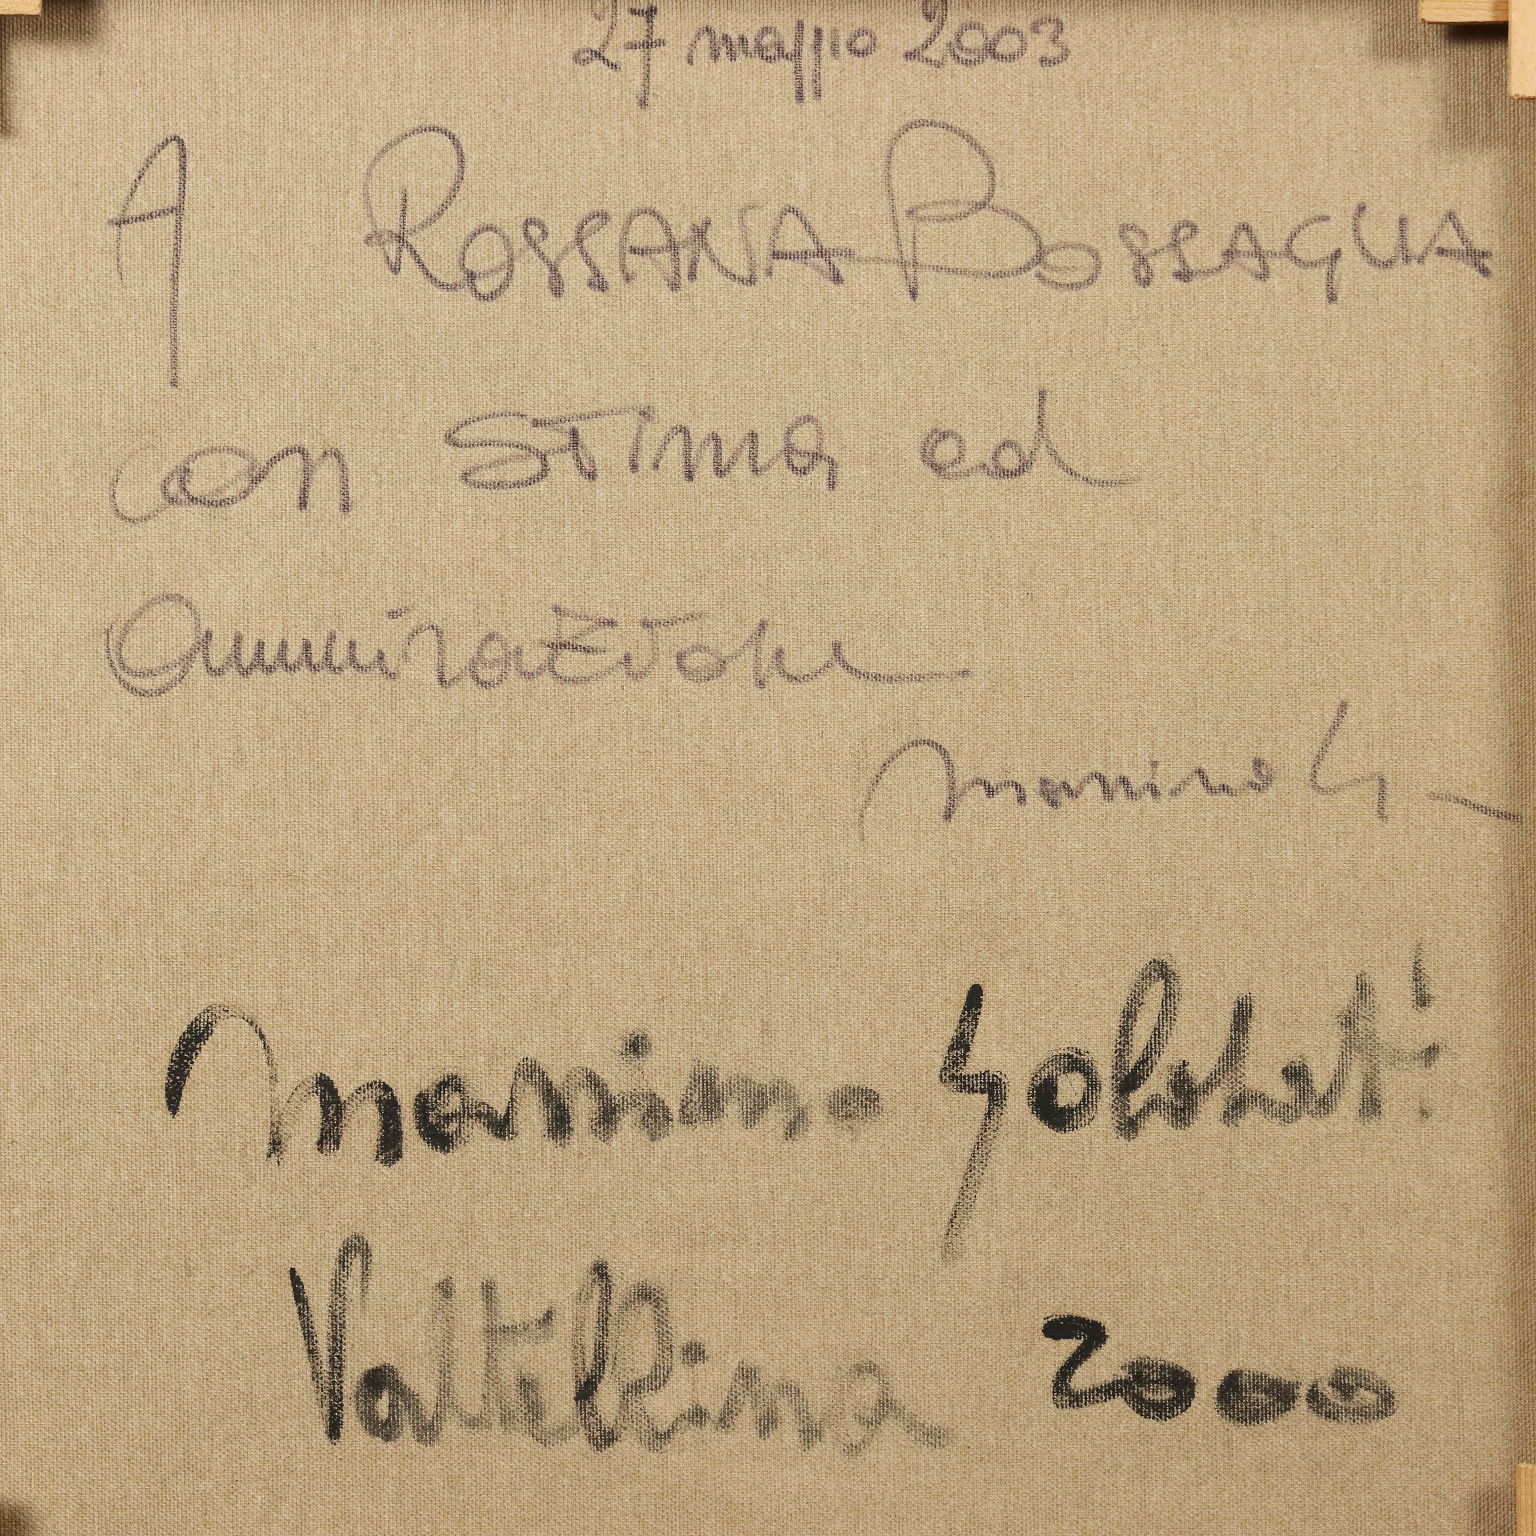 27 maggio 2003
A ROSSANA BOSSAGLIA
con stima ed
ammirazione
Massimo G
Massimo
Valtellina 2000